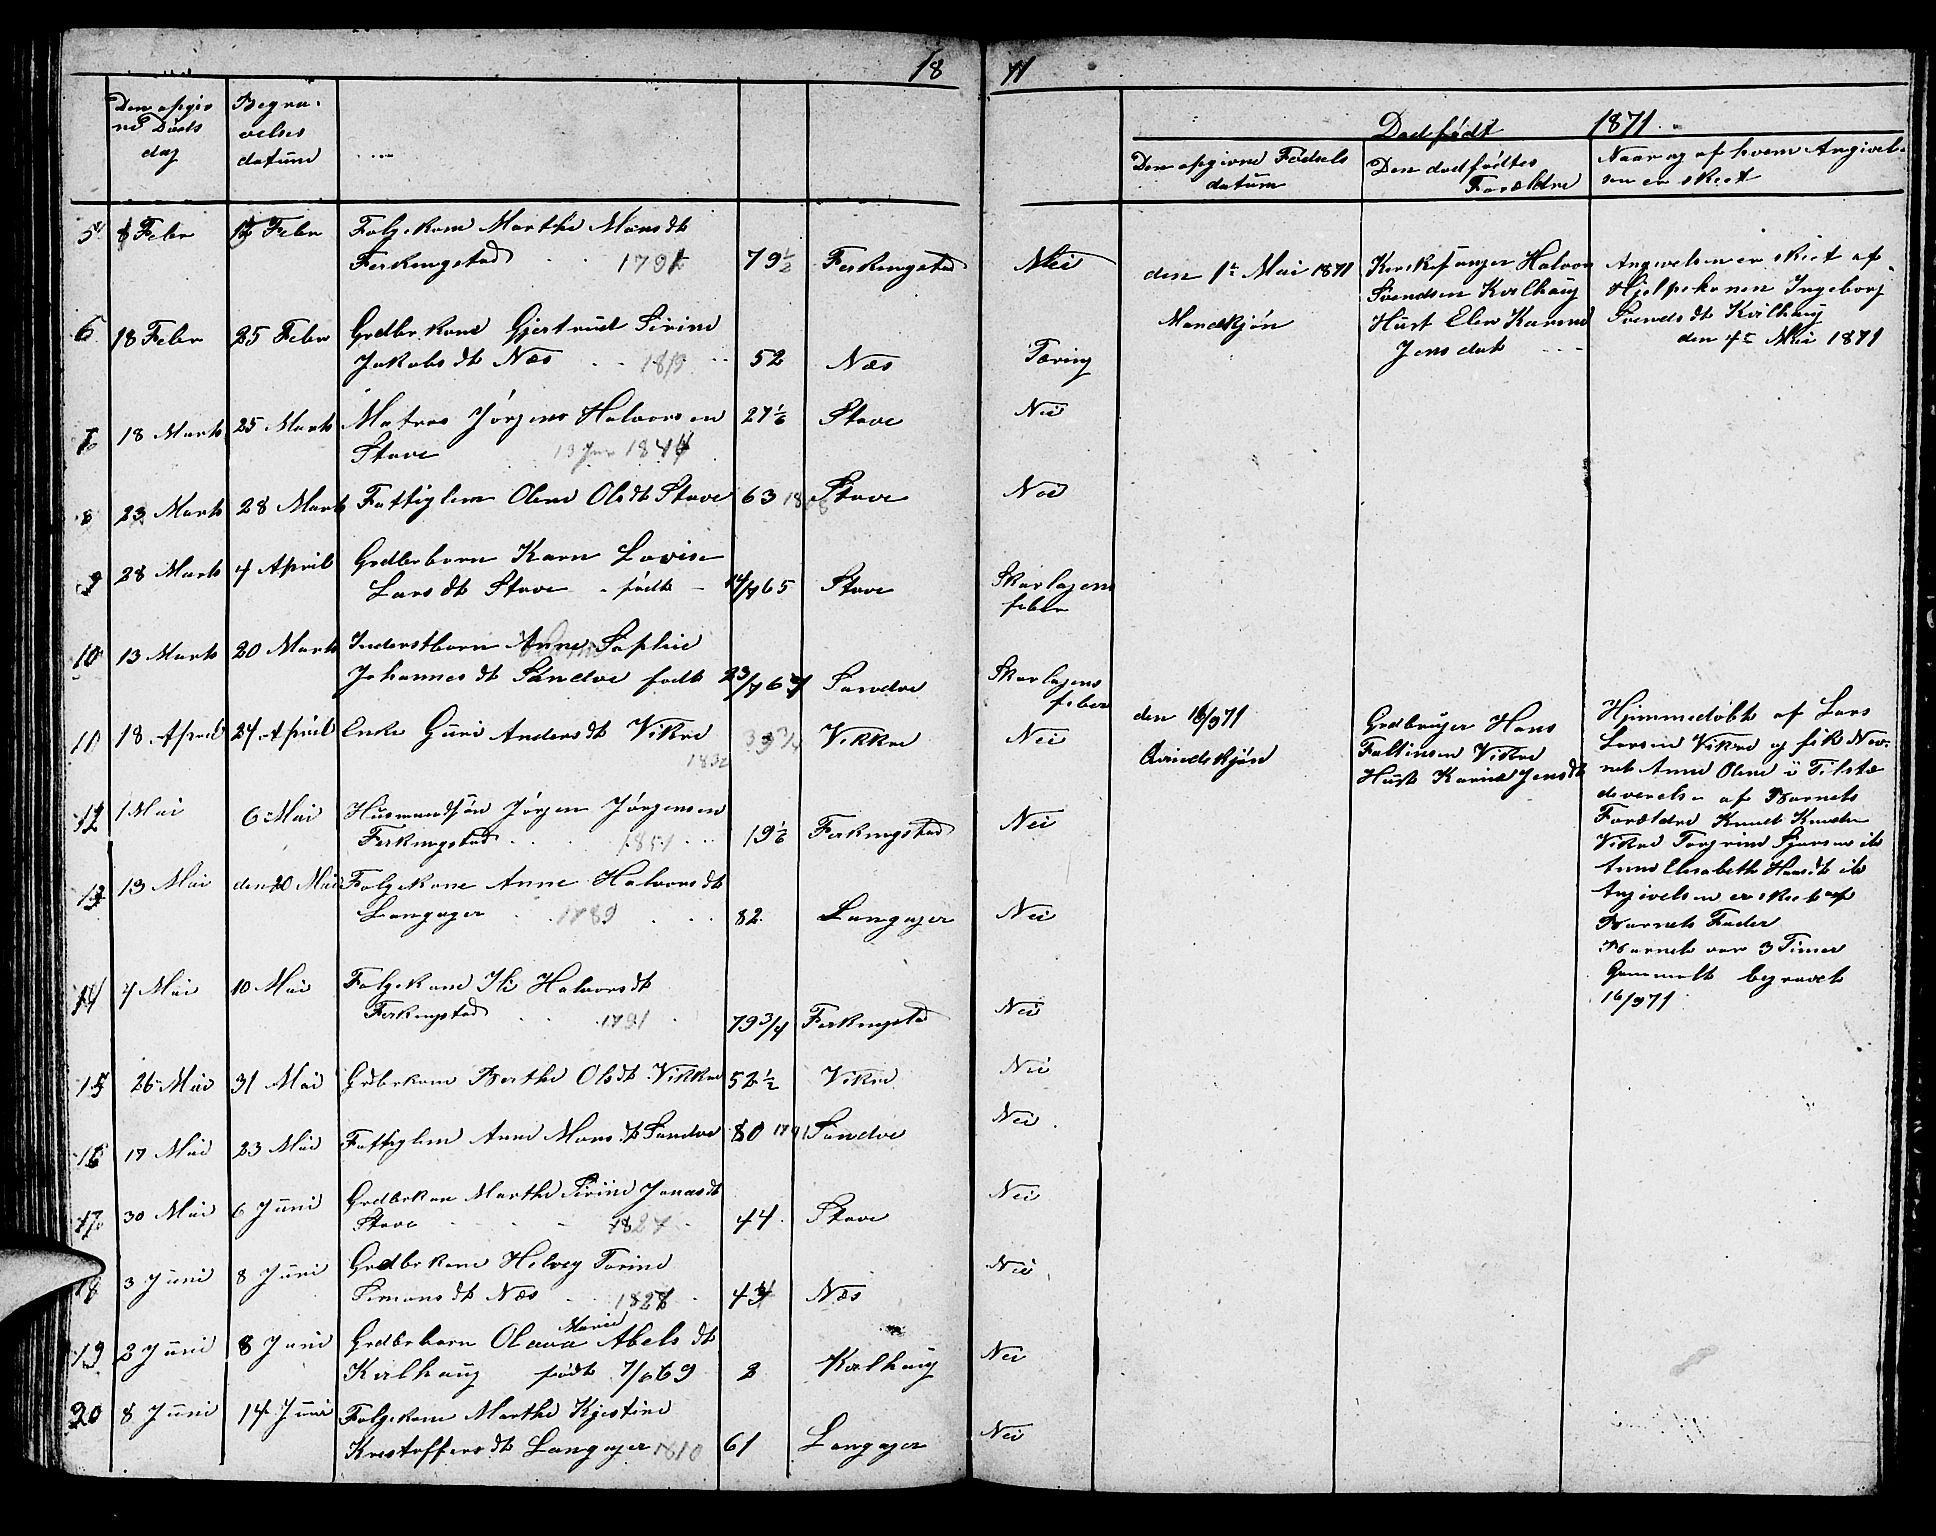 18
Den opgiv
ne Døds
dag
Begra-
velses
datum
5 8 Febr 18 Febr Folgekone Marthe Monsdt
Ferkingstad 1791 79½ Ferkingstad
6 18 Febr 25 Febr Grdbrkone Gjertrud Sirine
Jakobsdt Næs 1819 52 Næs
18 Marts 25 Marts Matros Jørgen Halvorsen 27½ Stave
Stave 1844
8 23 Marts 28 Marts Fattiglem Olene Olsdt Stave 63 Stave
9 28 Marts 4 April Grdbrbarn Karn Lovise
Larsdt Stave født 65 Stave
10 13 Marts 20 Marts Inderstbarn Anne Sophie
Johannesdt Sandve født Sandve
11 18 April 24 April Enke Guri Andersdt Vikre Vikre
1832
12 1 Mai 6 Mai Husmandsøn Jørgen Jørgensen
Ferkingstad 1851 19½ Ferkingstad
13 13 Mai den 20 Mai Folgekone Anne Halvorsdt
Langager 1789 82 Langager
14 4 Mai 10 Mai Folgekone Ili Halvorsdt
Ferkingstad 1791 79 3/4 Ferkingstad
15 26 Mai 31 Mai Grdbrkone Berthe Olsdt Vikre 52½ Vikre
16 17 Mai 23 Mai Fattiglem Anne Monsdt Sandve 80 1791 Sandve
17 30 Mai 6 Juni Grdbrkone Marthe Sirine Jonasdt
Stave 1827 44 Stave
18 3 Juni 8 Juni Grdbrkone Helvig Torine
Simonsdt Næs 43 Næs
Marie
19 2 Juni 8 Juni Grdbrbarn Olava Abelsdt
Kvilhaug født 7/6 69 2 Kvilhaug
20 8 Juni 14 Juni Folgekone Marthe Kjestine
Kristoffersdt Langager 1810 61 Langager
71
Dødfødt 1871
Den opgivne Fødsels
datum
Den dødfødtes
Forældre
Naar og af hvem Angivel-
sen er skeet
Nei
Tæring
Nei
Nei
Skarlagens
feber
Skarlagens
feber
Nei
Nei
Nei
Nei
Nei
Nei
Nei
Nei
Nei
Nei
den 1te Mai 1871
Mandkjøn
Kirkesanger Halvor
Svendsen Kvilhaug
Hust Elen Karine
Jensdat
Angivelsen er skeet af
Hjelpekonen Ingeborg
Svendsdt Kvilhaug
den 4de Mai 1871
den 16/9 71
Qvindekjøn
Grdbruger Hans
Faltinsen Vikre
Hust Karine Jensdt
Hjemmedøbt af Lars
Larsen Vikre og fik Nav-
net Anne Olene i Tilstæ
deverelse af Barnets
Forældre Knudt Knudsen
Vikre Torgrine Sjursens ib
Anne Elisabeth Hansdt ib
Angivelsen er skeet af
Barnets Fader
Barnet var 3 Timer
Gammelt begravet
16/9 71